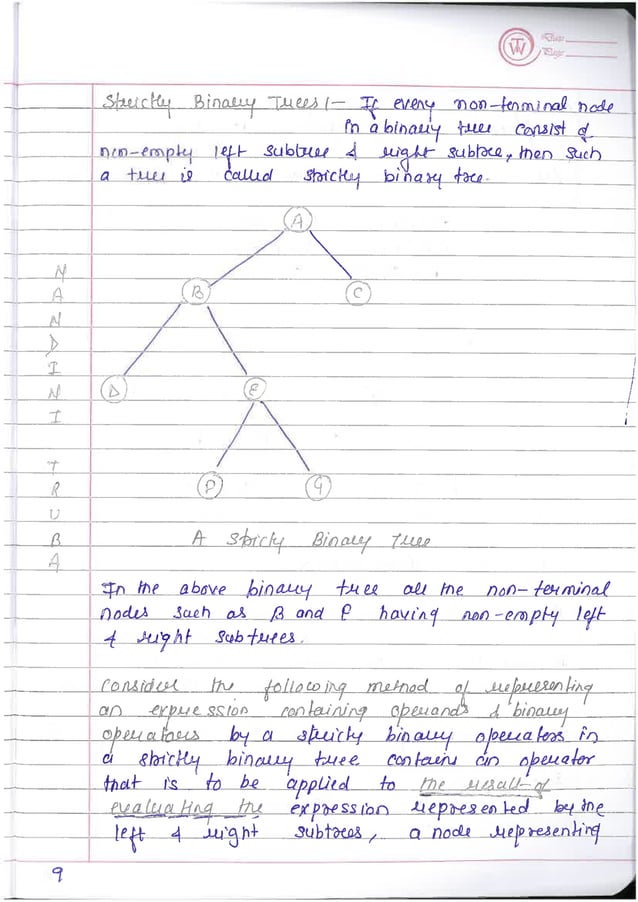 Date
Page
Strictly Binary Trees :- If every non-terminal node
in a binary tree consist of
non-empty left subtree & right subtree, then such
a tree is called strictly binary tree.
A
B
C
D
E
F
G
NANDINI TRUBA
A Stricly Binary Tree
In the above binary tree all the non-terminal
nodes such as B and E having non-empty left
& right subtrees.
Consider the following method of representing
an expression containing operands & binary
operators by a stricty binary operators in
a strictly binary tree contains an operator
that is to be applied to the result of
evaluating the expression represented by the
left & right subtrees, a node representing
9